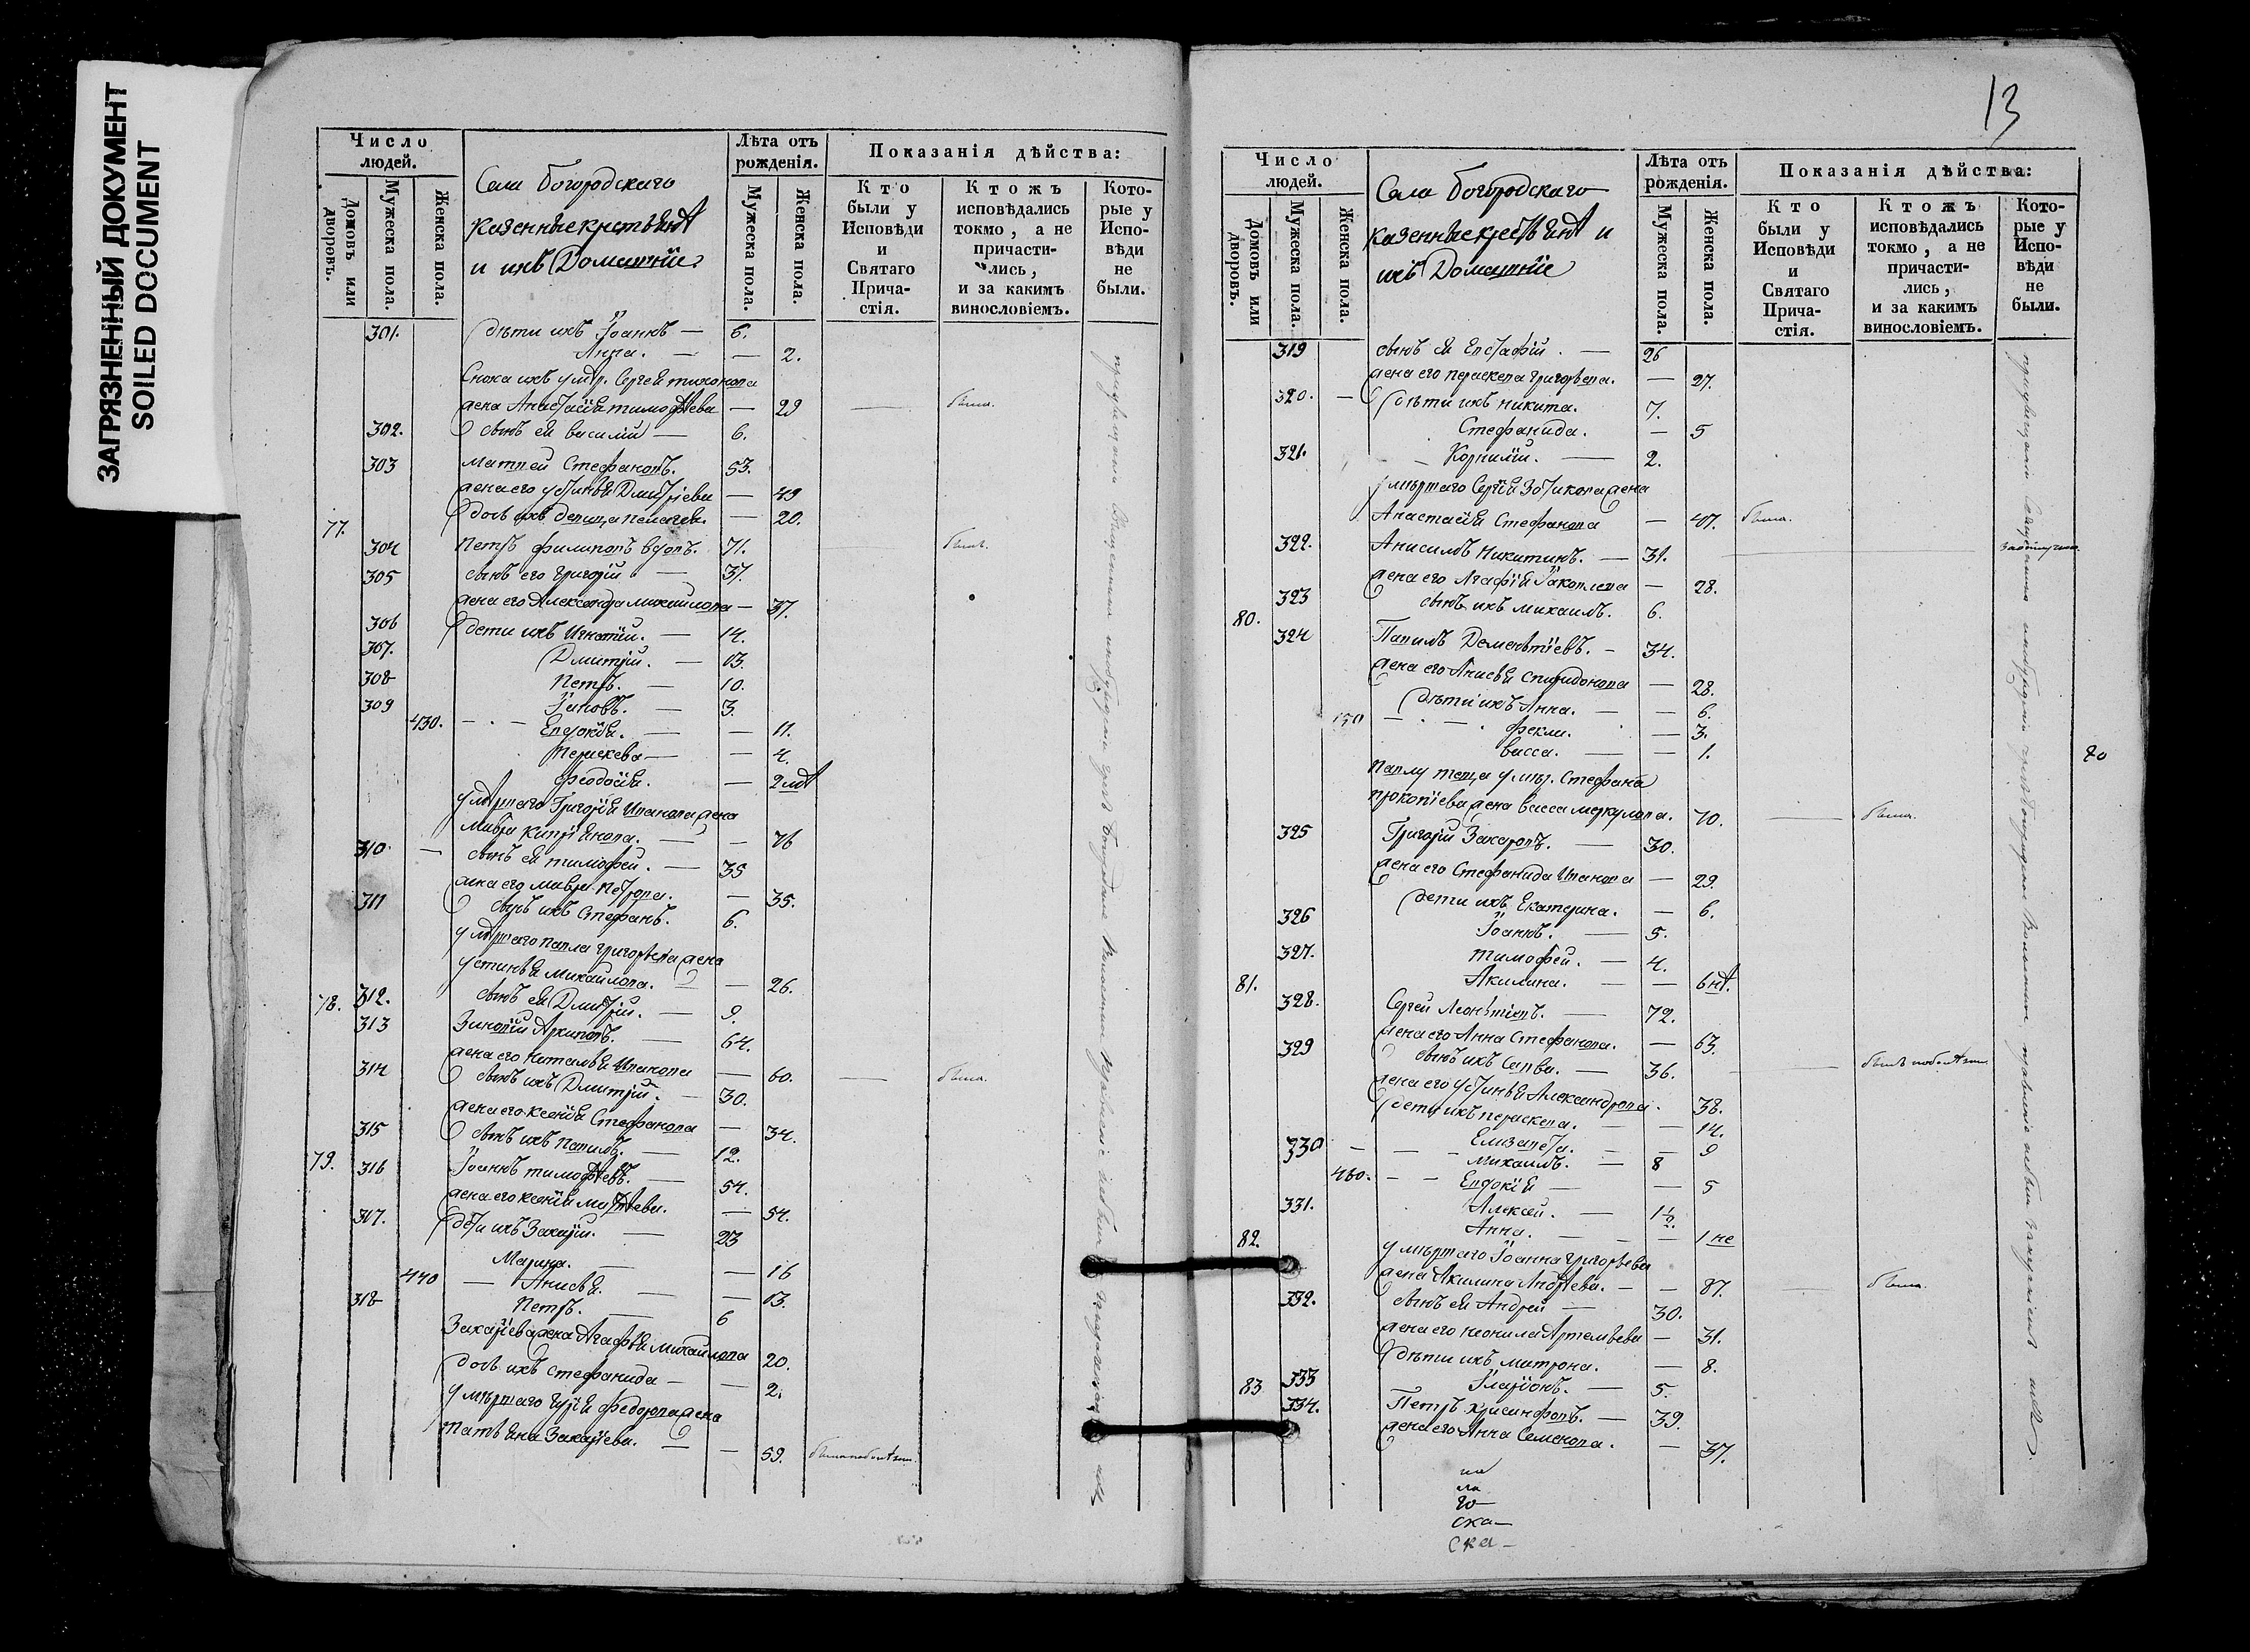 ЗАГРЯЗНЕННЫЙ ДОКУМЕНТ
SOILED DOCUMENT
Число людей.
Домовъ или дворовъ.
Мужеска пола.
Женска пола.
Села Богородскаго
казенные крестьяня
и ихъ Домашніе
Лѣта отъ рожденія.
Мужеска пола.
Женска пола.
Показанія дѣйства:
Кто были у Исповѣди и Святаго Прича-стія.
Ктожъ исповѣдались токмо, а не причасти-лись, и за какимъ винословіемъ.
Кото-рые у Испо-вѣди не были.
301. дѣти ихъ Іоаннъ — 6.
Анна. — — 2.
Сноха ихъ умер. Сергея тихонова
жена Анастасія тимофѣева — 29 — была.
302. сынъ ея василій — 6.
303 матвей Стефановъ. 53.
жена его устинья Дмитріева — 49
дочь ихъ девица пелагея. — 20.
77.
304 Петръ филиповъ вдовъ. 71. былъ.
305 сынъ его григорій — 37.
жена его Александра михаилова — 37.
306 дети ихъ Игнатій. — 14.
307. Дмитрій. — 13.
308 Петръ. — 10.
309 Іаковъ. — 3.
430. — Евдокія. — — 11.
Параскева — — 4.
феодосія. — 2 мя
умершаго Григорія Иванова жена
мавра Кипріянова. — — 76
310. — сынъ ея тимофей. — 35
жена его мавра петрова. — 35.
311 сынъ ихъ Стефанъ. 6.
умершаго павла григорьева жена
устинья Михаилова. — — 26.
312. сынъ ея Дмитрій. — 9.
78.
313 Зиновій Архиповъ. — 64.
жена его Наталья Иванова — 60. — была.
314 сынъ ихъ Дмитрій. — 30.
жена его ксенія Стефанова — 34.
315 сынъ ихъ павилъ. — 12.
79.
316 Іоаннъ тимофѣевъ. — 54.
жена его ксенія матвѣева. — 54.
317. дѣти ихъ Захарій. — 23
Марина. — — 16
440 — Анисья. — — 13.
318 Петръ. — 6
Захарьева жена Агафья михаилова 20.
дочь ихъ стефанида — — 2.
умершаго Гурія федорова жена
татьяна Захарьева. — — 59.
13
Число людей.
Домовъ или дворовъ.
Мужеска пола.
Женска пола.
Села Богородскаго
казенные крестьяня и
ихъ Домашніе
Лѣта отъ рожденія.
Мужеска пола.
Женска пола.
Показанія дѣйства:
Кто были у Исповѣди и Святаго Прича-стія.
Ктожъ исповѣдались токмо, а не причасти-лись, и за какимъ винословіемъ.
Кото-рые у Испо-вѣди не были.
319 сынъ ея Евстафій. — 26
жена его параскева григорьева. — 27.
320. — дѣти ихъ никита. 7.
Стефанида. — 5
321. — Корнилій. — 2.
умершаго Сергія Зотикова жена
Анастасія Стефанова — 47. была.
322. Анисимъ Никитинъ. — 31.
жена его Агафія Іаковлева — 28.
323 сынъ ихъ михаилъ. 6.
80.
324 Павилъ Дементіевъ. — 34.
жена его Анисья спиридонова — 28.
дѣти ихъ Анна. — — 6.
450 — фекла. — 3.
васса. — — 1.
Павлу теща умер. Стефана
прокопіева жена васса меркулова. 70. — была.
325 Григорій Захаровъ. — 30.
жена его Стефанида Иванова — 29.
дети ихъ Екатерина. — 6.
326 Іоаннъ. — 5.
327. тимофей. — 4.
Акилина. — — 6 ня.
81.
328. Сергей Леонтіевъ. — 72.
жена его Анна Стефанова. — 63.
329 сынъ ихъ Савва. — 36.
жена его устинья Александрова. 38.
дети ихъ параскева. — — 14.
Елизавета. — — 9
330 — Михаилъ. — 8
460. — Евдокія — — 5
331. Алексей. — 1½.
Анна. — — 1 не
82.
умершаго Іоанна григорьева
жена Акилина Андреева. — — 87. — была.
332. сынъ ея Андрей — 30.
жена его неонила Артемьева — 31.
дѣти ихъ матрона. — 8.
333 Иларіонъ. — 5.
83
334. Петръ Хрисанфовъ. — 39.
жена его Анна Семенова. — 37.
на
ла
го
ска—
ска—